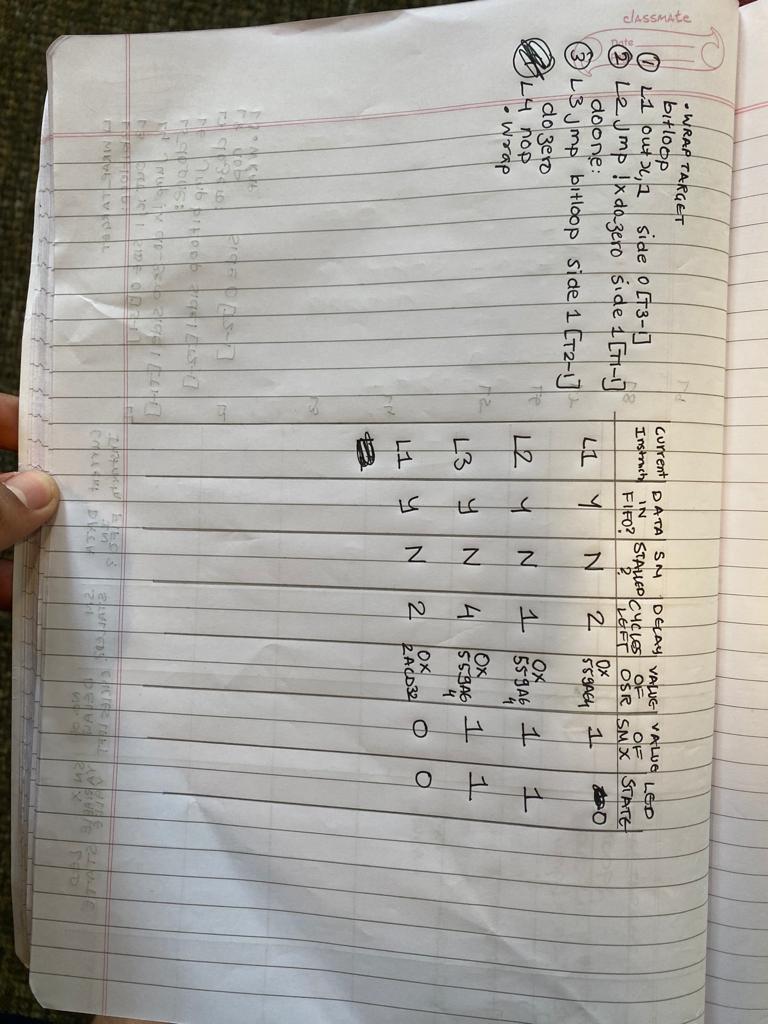 classmate
Date
• WRAP TARGET
bitloop
① L1 out x, 1 side 0 [T3-1]
② L2 jmp !x dozero side 1 [T1-1]
doone:
③ L3 jmp bitloop side 1 [T2-1]
dozero
L4 nop
• wrap
Current Instructn DATA IN FIFO? SM STALLED? DELAY CYCLES LEFT VALUE OF OSR VALUE OF SM X LED STATE
L1 Y N 2 0x 559A64 1 0
L2 Y N 1 0x 559A64 1 1
L3 Y N 4 0x 559A64 1 1
L1 Y N 2 0x 2ACD32 0 0